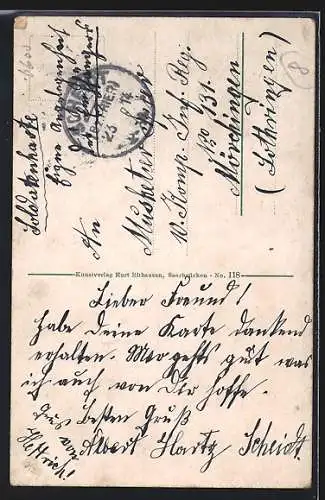 Soldatenkarte
Eigne Angelegenheit
des Empfängers
23
14
An
Musketier
10 Komp. Inf. Reg.
No 131.
Mörchingen
(Lothringen)
8
Kunstverlag Kurt Süthausen, Saarbrücken - No. 118
Lieber Freund!
habe deine Karte dankend
erhalten. Mir gehts gut was
ich auch von Dir hoffe.
besten Gruß
von
Albert Hartz Scheidt.